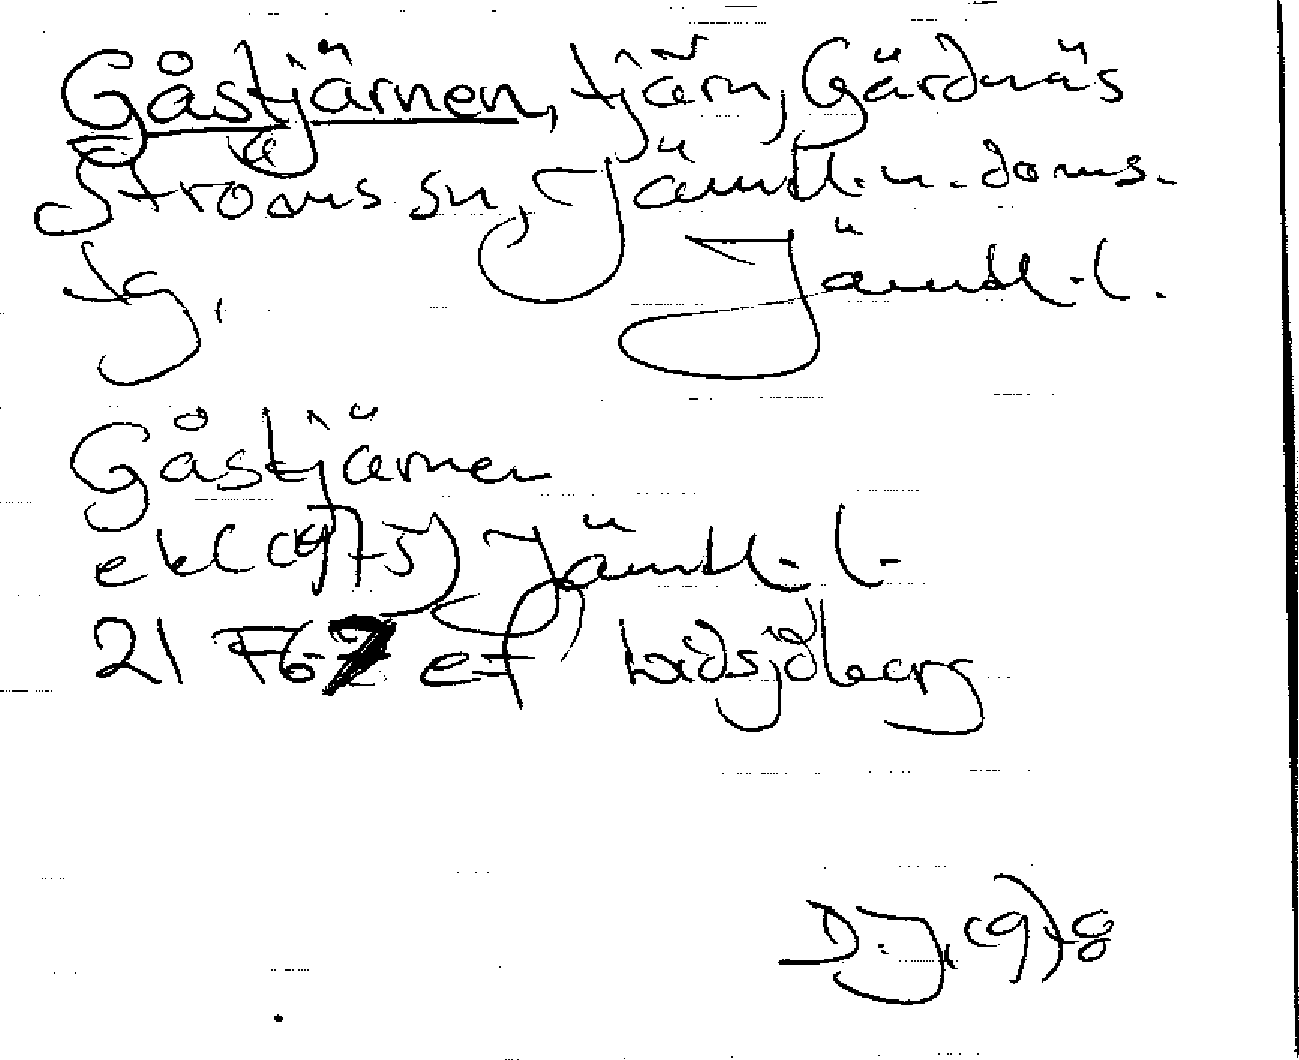 Gåstjärnen, tjärn, Gärdnäs
Ströms sn, Jämtl. n. doms.
tg, Jämtl. l.
Gåstjärnen
ekl (1975) Jämtl. l.
21 F 6-7 ef, Hotagsjöberg
D. J. 1978